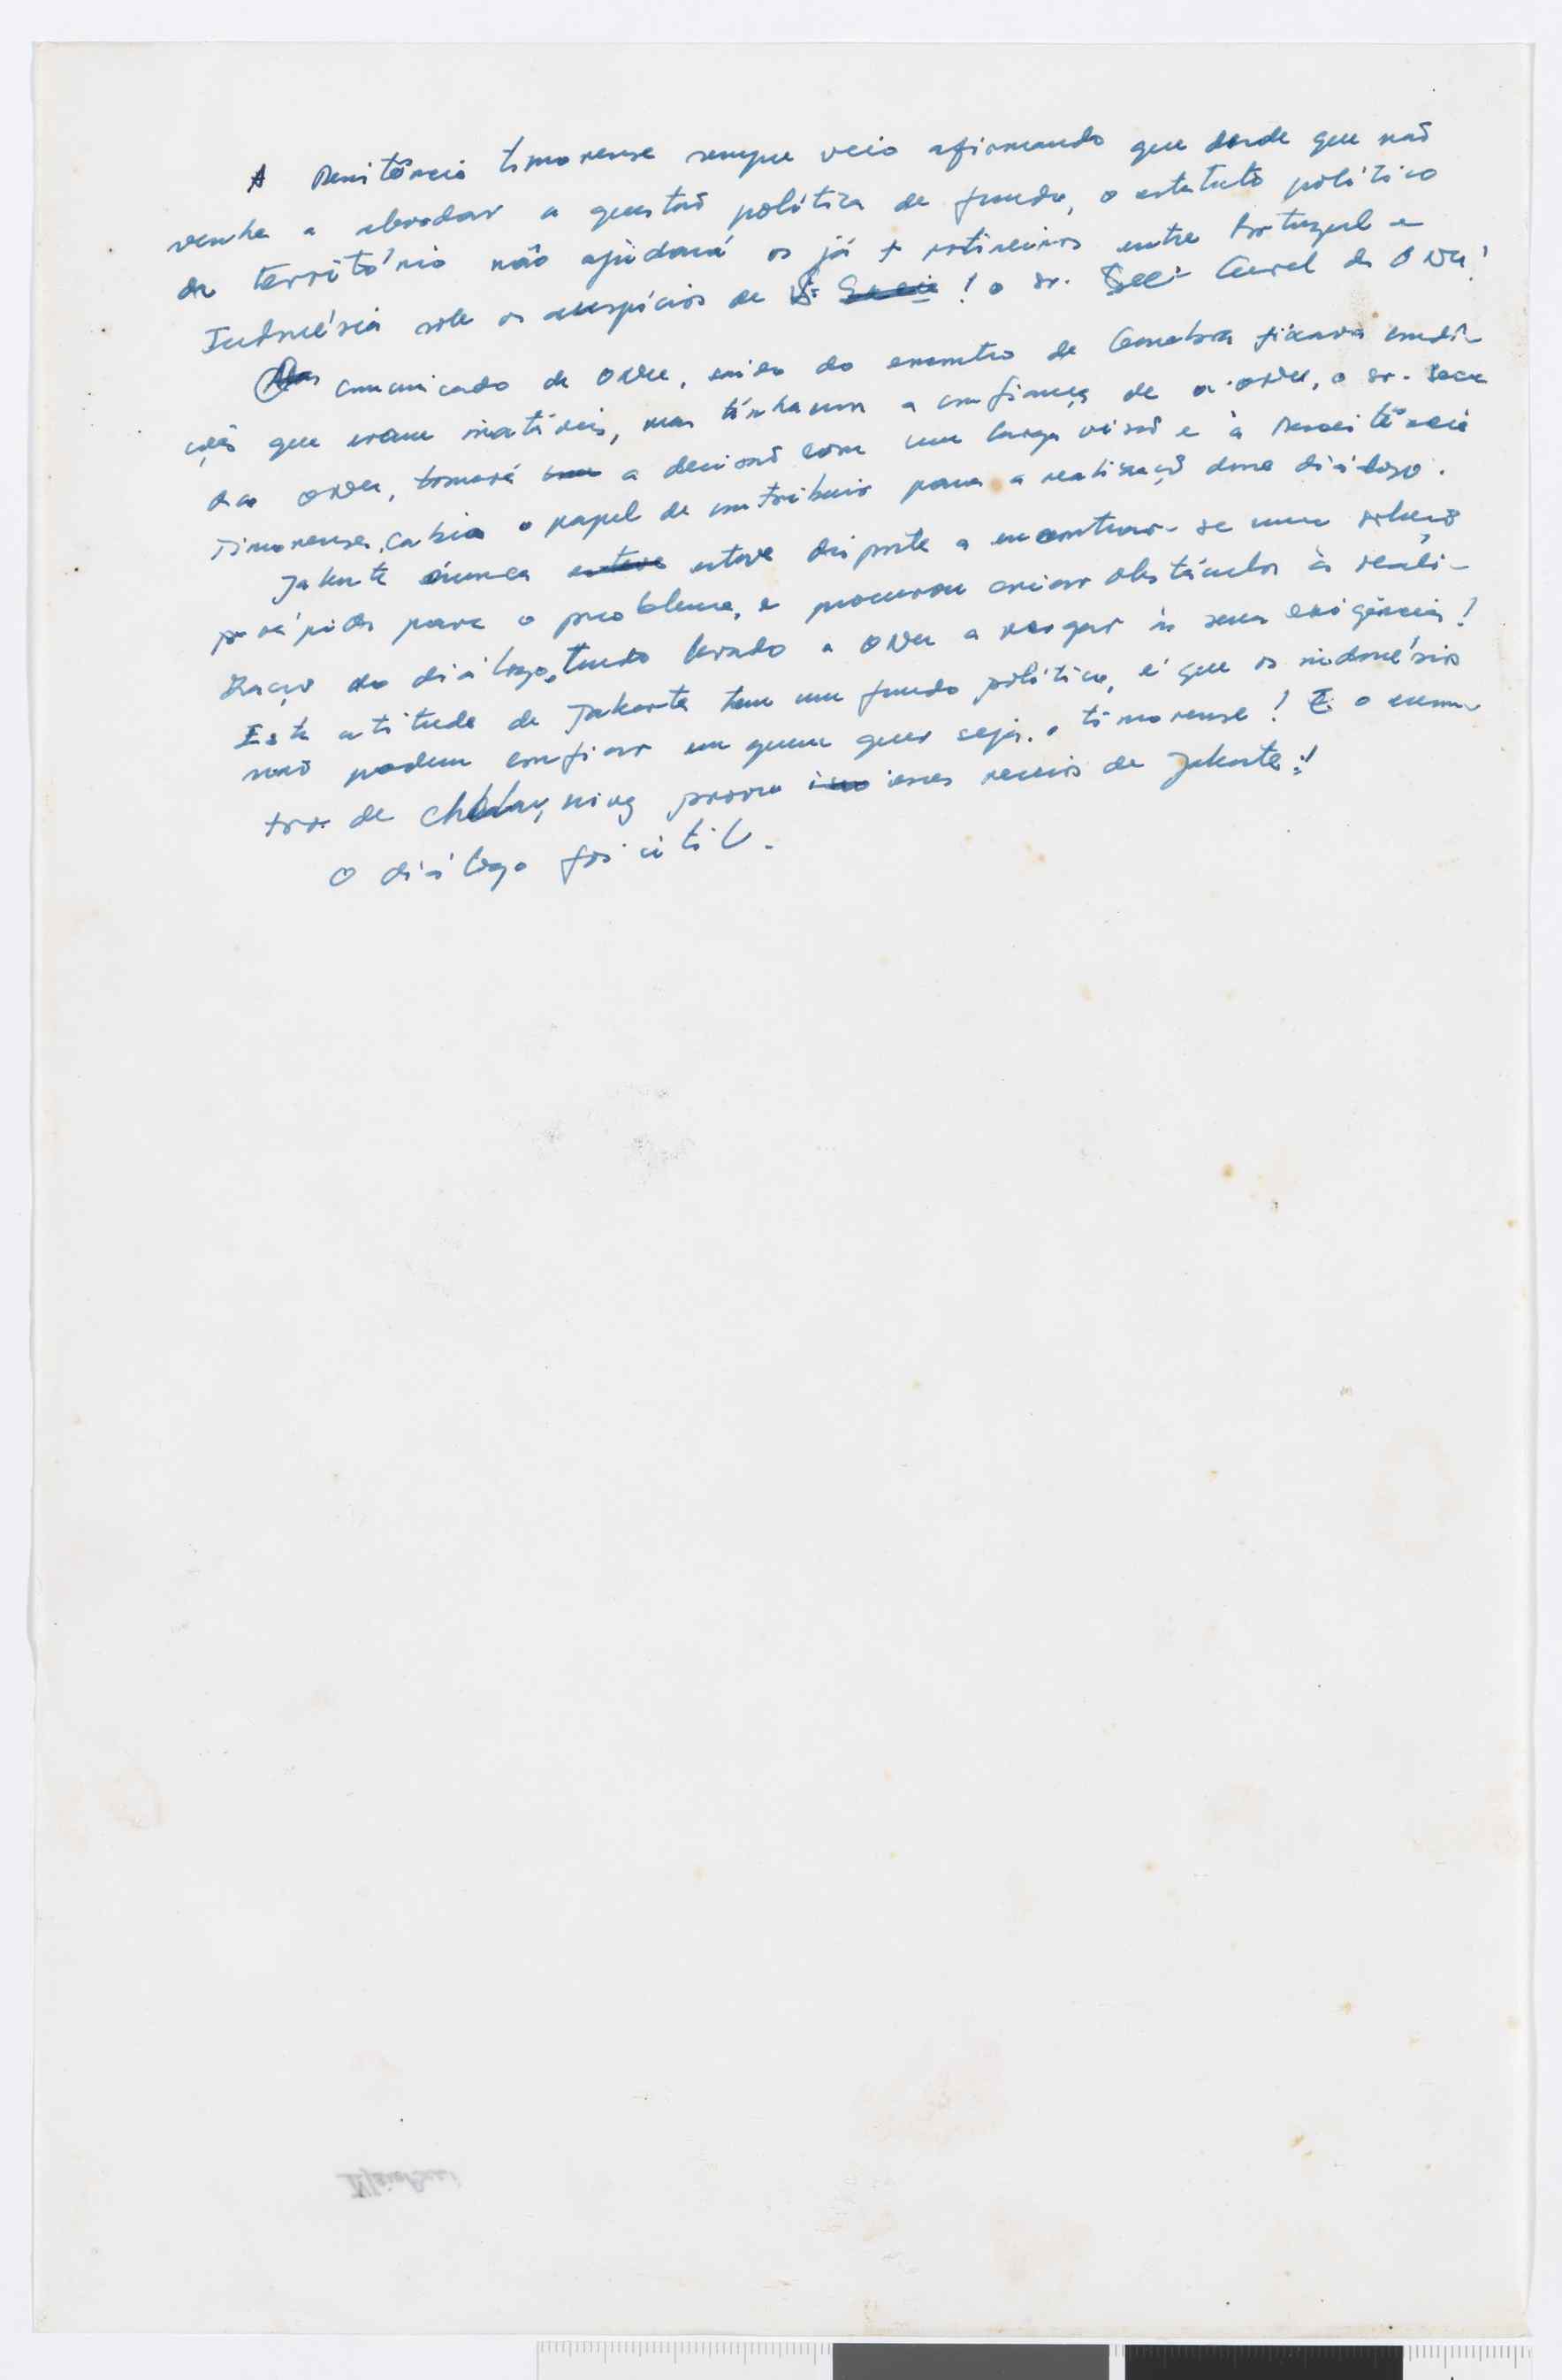 A Resistência timorense sempre veio afirmando que desde que não
venha a abordar a questão política de fundo, o estatuto político
do território não ajudará os já + rotineiros entre Portugal e
Indonésia sob os auspícios de ! o sr. Geral da ONU!
O comunicado da ONU, saido do encontro de Genebra fixava condi-
ções que eram inatíveis, mas tínhamos a confiança de a ONU, o sr. Secr
da ONU, tomará a decisão com uma larga visão e à Resistência
Timorense, cabia o papel de contribuir para a realização dum diálogo.
Jakarta nunca esteve esteve disposta a encontrar-se uma solução
rápida para o problema, e procurou criar obstáculos à reali-
zação do diálogo, tendo levado a ONU a vergar às suas exigências!
Esta atitude de Jakarta tem um fundo político, é que os indonésios
não podem confiar em quem quer seja, timorense! E o encon-
tro de prova isso esses receios de Jakarta!
O diálogo foi útil.